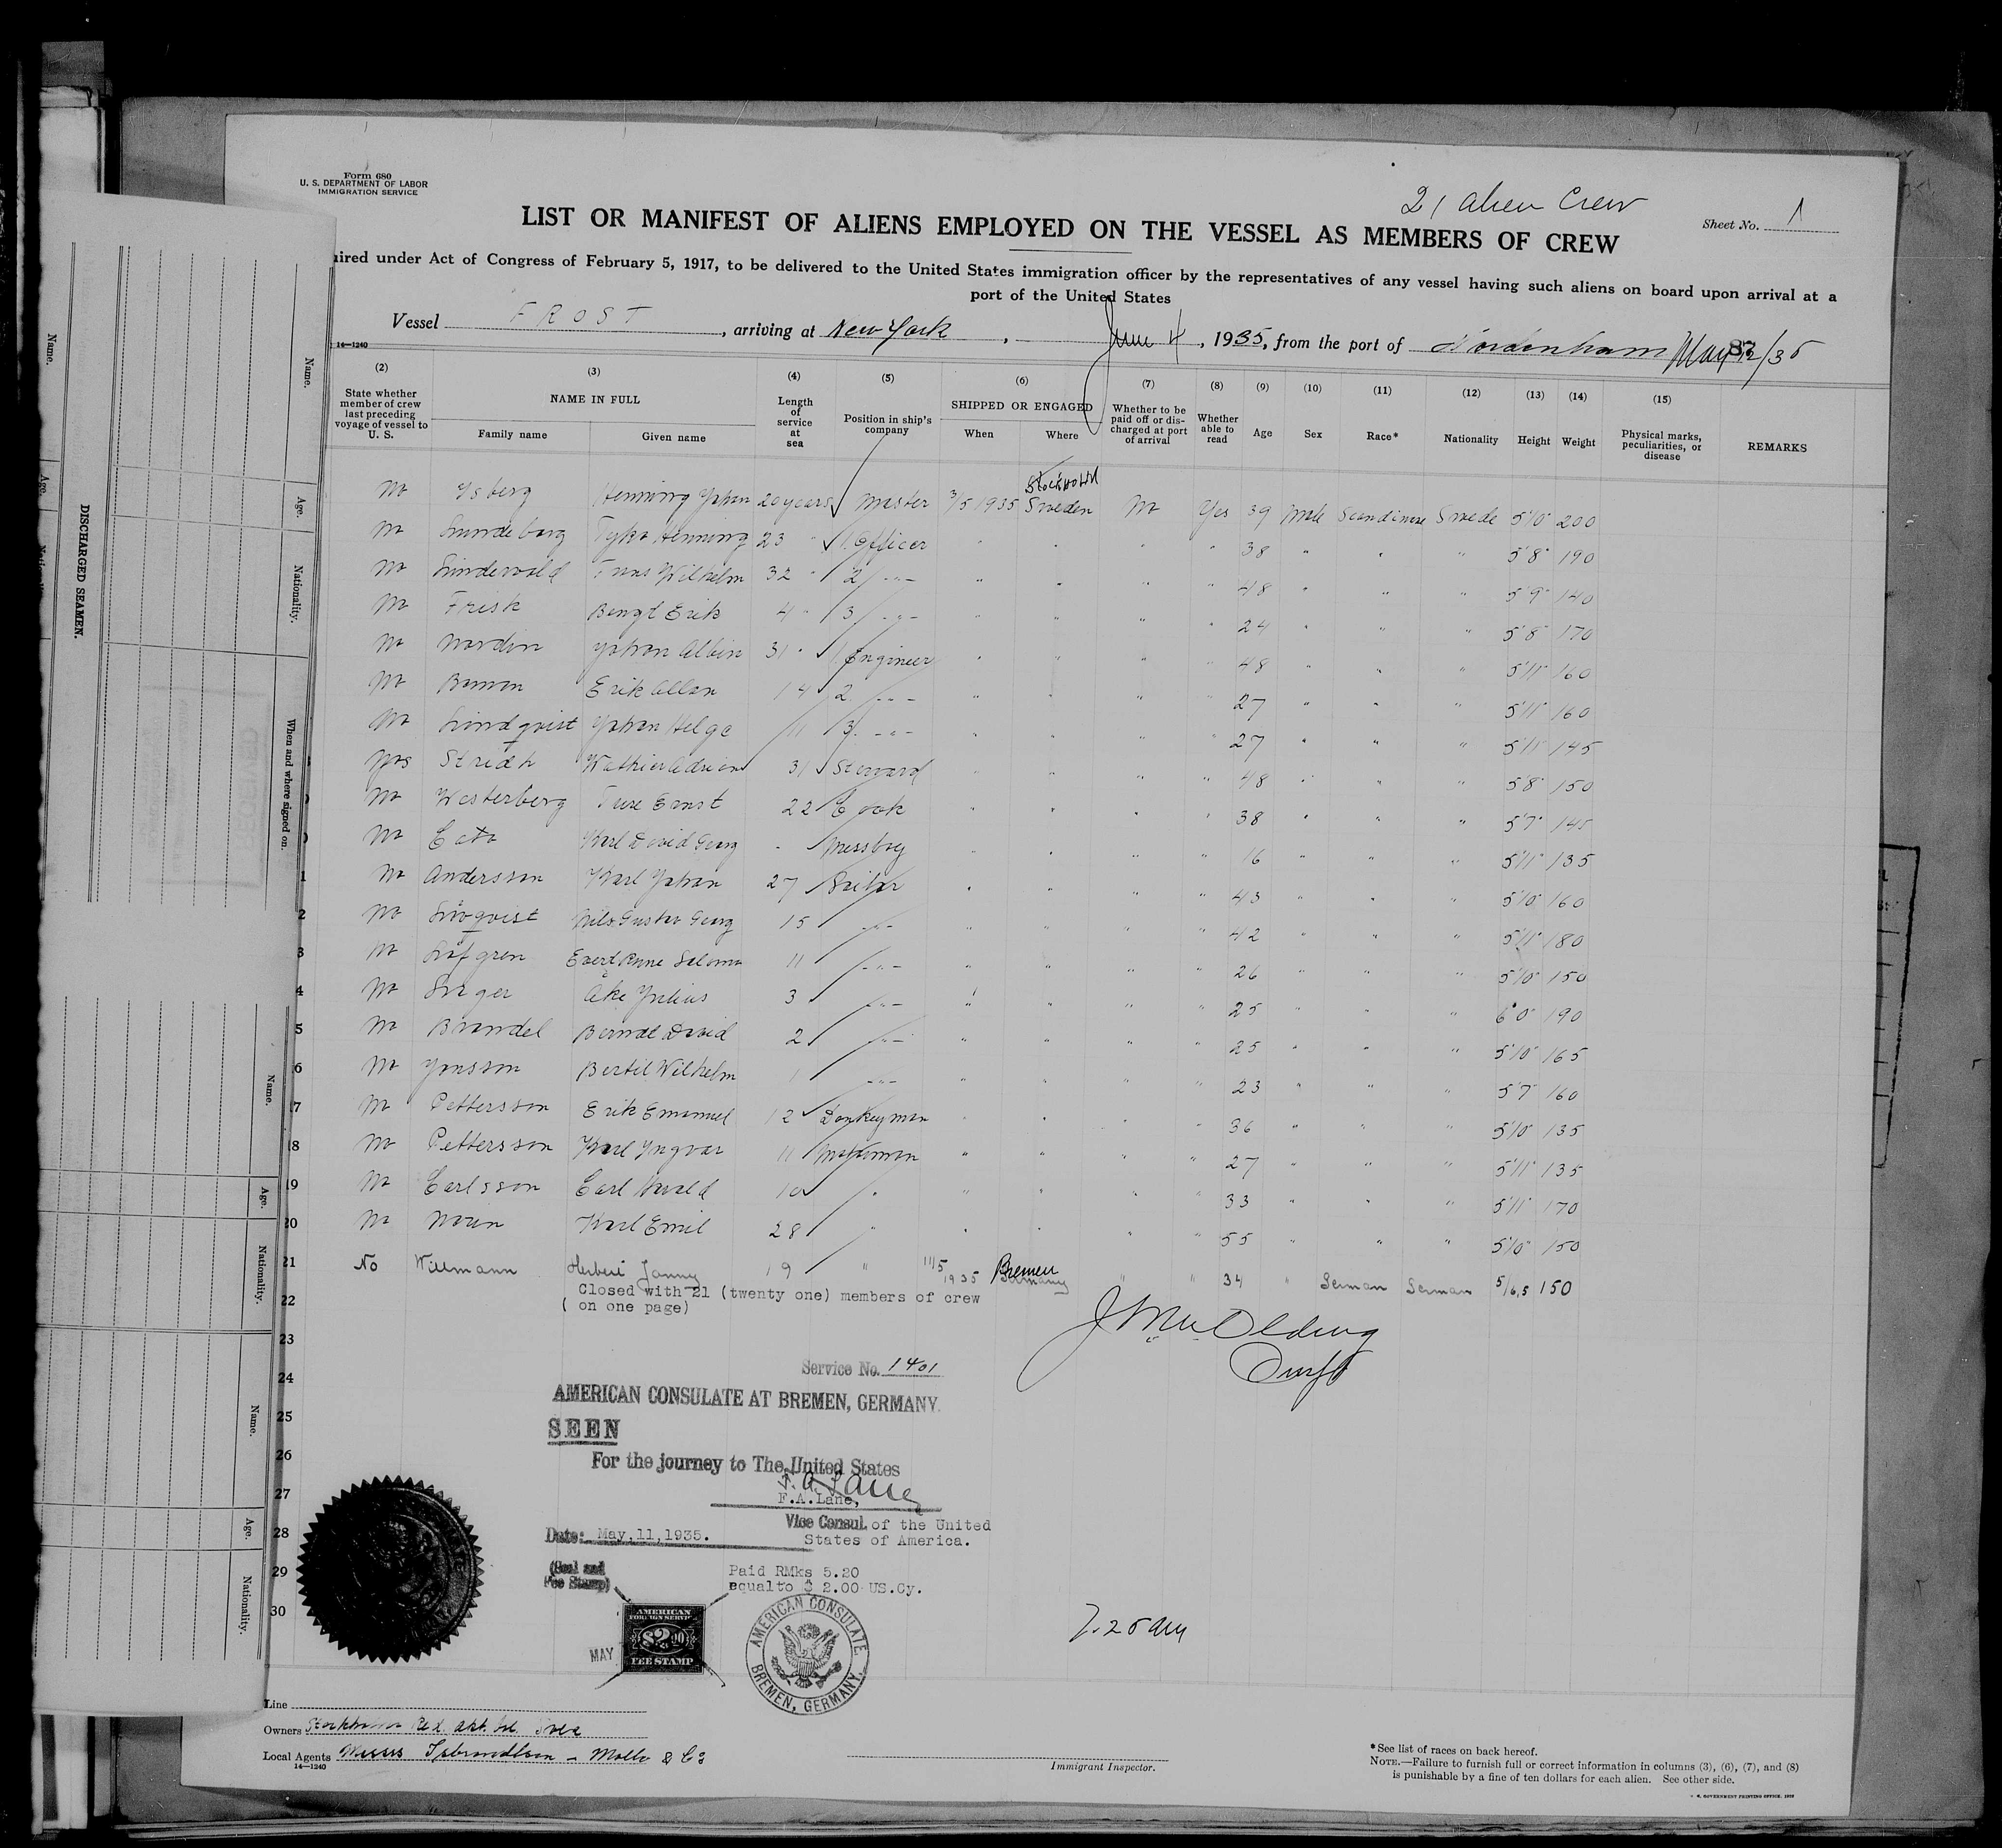 Form 680
U. S. DEPARTMENT OF LABOR
IMMIGRATION SERVICE
21 Alien Crew
Sheet No. 1
LIST OR MANIFEST OF ALIENS EMPLOYED ON THE VESSEL AS MEMBERS OF CREW
ired under Act of Congress of February 5, 1917, to be delivered to the United States immigration officer by the representatives of any vessel having such aliens on board upon arrival at a
port of the United States
Vessel FROST, arriving at New York, June 4, 1935, from the port of Nordenham
14—1240
(2) (3) (4) (5) (6) (7) (8) (9) (10) (11) (12) (13) (14) (15)
State whether member of crew last preceding voyage of vessel to U. S. NAME IN FULL Family name Given name Length of service at sea Position in ship's company SHIPPED OR ENGAGED When Where Whether to be paid off or discharged at port of arrival Whether able to read Age Sex Race* Nationality Height Weight Physical marks, peculiarities, or disease REMARKS
Stockholm
No Ysberg Henning Yohan 20 years Master 3/5 1935 Sweden No Yes 39 Male Swede 5'10" 200
No Henning 23 " 1 Officer " " " " 38 " " " 5'8" 190
No Wilhelm 32 " 2 -"- " " " " 48 " " " 5'9" 140
No Frisk Bengt Erik 4 " 3 -"- " " " " 24 " " " 5'8" 170
No Norden Yohan Albin 31 " 1 Engineer " " " " 48 " " " 5'11" 160
No Erik Allan 14 2 -"- " " " " 27 " " " 5'11" 160
No Lindqvist Yohan Helge 11 3 -"- " " " " 27 " " " 5'11" 145
Yes Stridh 31 Steward " " " " 48 " " " 5'8" 150
No Westerberg Ture Ernst 22 Cook " " " " 38 " " " 5'7" 145
No Karl David Georg - Messboy " " " " 16 " " " 5'11" 135
1 No Andersson Karl Yohan 27 Sailor " " " " 43 " " " 5'10" 160
2 No Nils Gustav Georg 15 -"- " " " " 42 " " " 5'11" 180
3 No Löfgren Evert Rune 11 -"- " " " " 26 " " " 5'10" 150
4 No Åke Yulius 3 -"- " " " " 25 " " " 6'0" 190
5 No Brandel Berndt David 2 -"- " " " " 25 " " " 5'10" 165
6 No Yonsson Bertil Wilhelm 1 -"- " " " " 23 " " " 5'7" 160
17 No Pettersson Erik Emanuel 12 Donkeyman " " " " 36 " " " 5'10" 135
18 No Pettersson Karl Yngvar 11 " " " " 27 " " " 5'11" 135
19 No Carlsson Carl 10 " " " " " 33 " " " 5'11" 170
20 No Karl Emil 28 " " " " " 55 " " " 5'10" 150
21 No Willmann Herbert 19 " 11/5 1935 Bremen Germany " " 34 " German German 5/6,5 150
22 Closed with 21 (twenty one) members of crew
( on one page)
23
24
25
26
27
28
29
30
Service No. 1401
AMERICAN CONSULATE AT BREMEN, GERMANY.
SEEN
For the journey to The United States
F.A.Lane
F.A.Lane,
Vice Consul of the United
States of America.
Date: May,11,1935.
(Seal and
Fee Stamp)
Paid RMks 5.20
equalto $ 2.00 US.Cy.
AMERICAN
FOREIGN SERVICE
$2.00
FEE STAMP
MAY
AMERICAN CONSULATE
BREMEN, GERMANY.
7.25 am
Line
Owners
Local Agents Messrs Isbrandtsen - Moller & Co
14—1240
Immigrant Inspector.
*See list of races on back hereof.
NOTE.—Failure to furnish full or correct information in columns (3), (6), (7), and (8)
is punishable by a fine of ten dollars for each alien. See other side.
DISCHARGED SEAMEN.
Name.
Age.
Nationality.
When and where signed on.
Name.
Age.
Nationality.
Name.
Age.
Nationality.
Name.
Age.